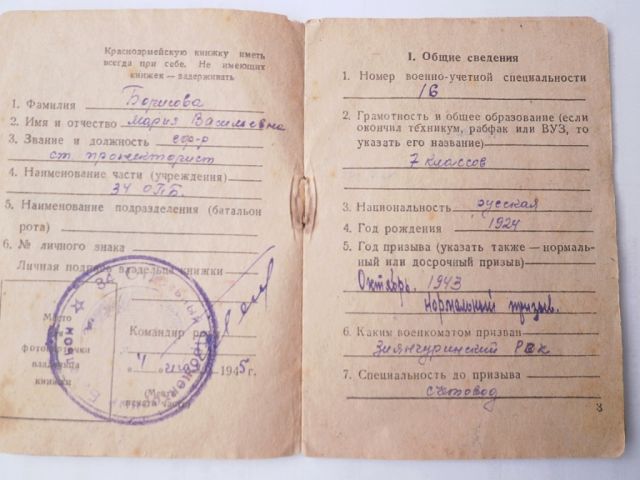 Красноармейскую книжку иметь
всегда при себе. Не имеющих
книжек — задерживать
1. Фамилия Борисова
2. Имя и отчество Мария Васильевна
3. Звание и должность ефр-р
ст. прожекторист
4. Наименование части (учреждения)
34 ОПБ.
5. Наименование подразделения (батальон
рота)
6. № личного знака
Личная подпись владельца книжки
Место
для
фотокарточки
владельца
книжки
Командир
4 1945 г.
(Место
печати части)
I. Общие сведения
1. Номер военно-учетной специальности
16
2. Грамотность и общее образование (если
окончил техникум, рабфак или ВУЗ, то
указать его название)
7 классов
3. Национальность русская
4. Год рождения 1924
5. Год призыва (указать также — нормаль-
ный или досрочный призыв)
Октябрь 1943
Нормальный призыв.
6. Каким военкоматом призван
Зиянчуринский РВК
7. Специальность до призыва
счетовод
3